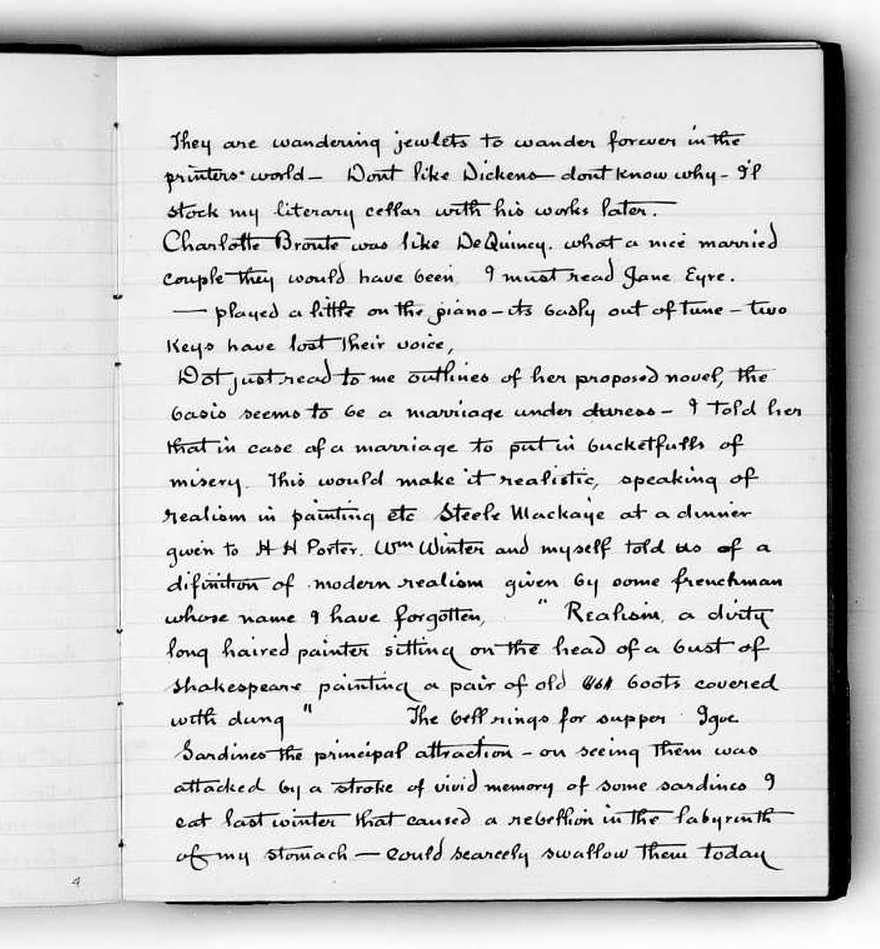 They are wandering jewlets to wander forever in the
printers world — Dont like Dickens — dont know why - I'l
stock my literary cellar with his works later.
Charlotte Bronte was like DeQuincy. what a nice married
couple they would have been I must read Jane Eyre.
— played a little on the piano - its badly out of tune - two
Keys have lost their voice,
Dot just read to me outlines of her proposed novel, the
basis seems to be a marriage under duress - I told her
that in case of a marriage to put in bucketfulls of
misery. This would make it realistic, speaking of
realism in painting etc Steele Mackaye at a dinner
given to H H Porter. Wm Winter and myself told us of a
difinition of modern realism given by some frenchman
whose name I have forgotten, " Realism, a dirty
long haired painter sitting on the head of a bust of
Shakespeare painting a pair of old boots covered
with dung " The bell rings for supper Igoe
Sardines the principal attraction - on seeing them was
attacked by a stroke of vivid memory of some sardines I
eat last winter that caused a rebellion in the labyrinth
of my stomach — Could scarcely swallow them today
4